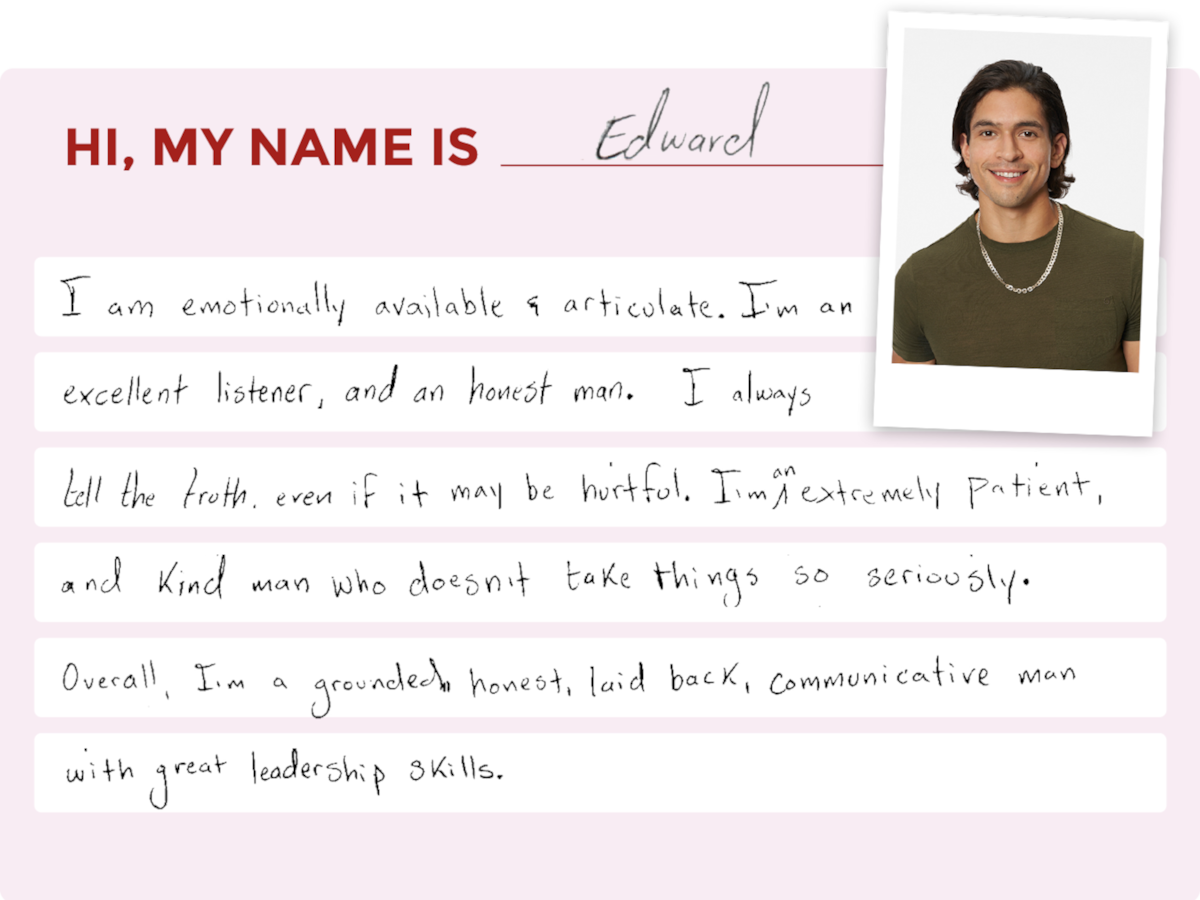 HI, MY NAME IS Edward
I am emotionally available & articulate. I'm an
excellent listener, and an honest man. I always
tell the truth. even if it may be hurtful. I'm an extremely patient,
and kind man who doesn't take things so seriously.
Overall, I'm a grounded, honest, laid back, communicative man
with great leadership skills.